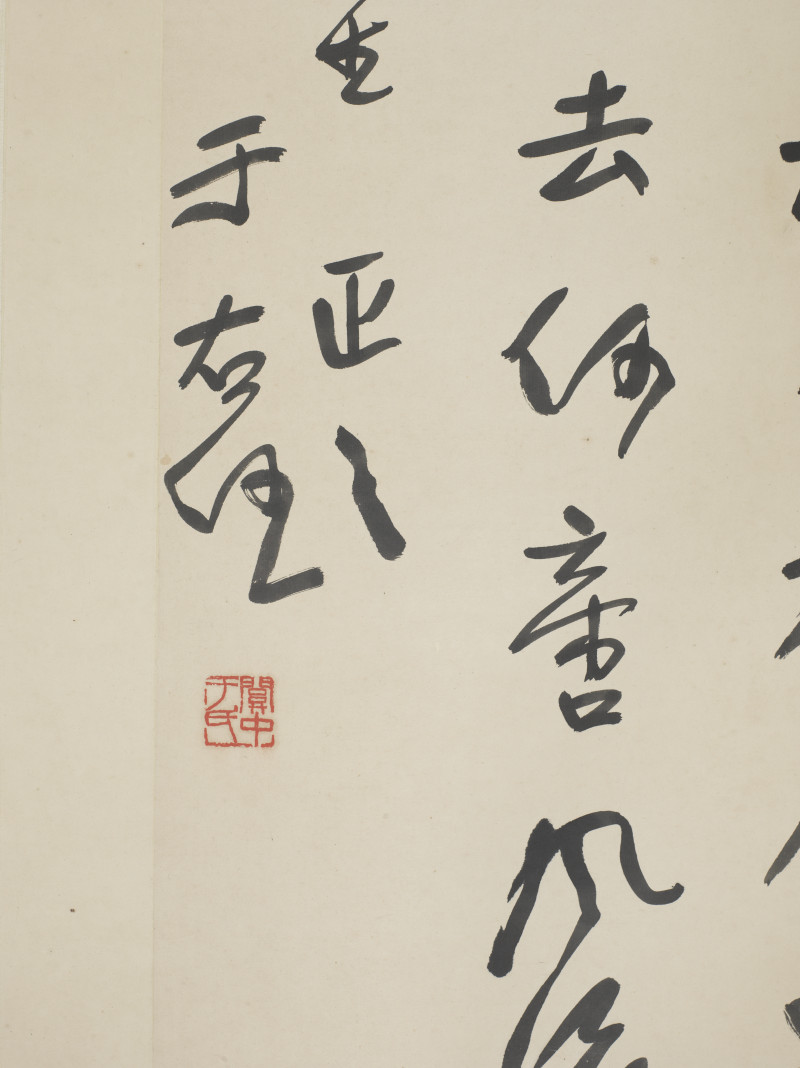 去何啻風
生正之
于右任
關中于氏